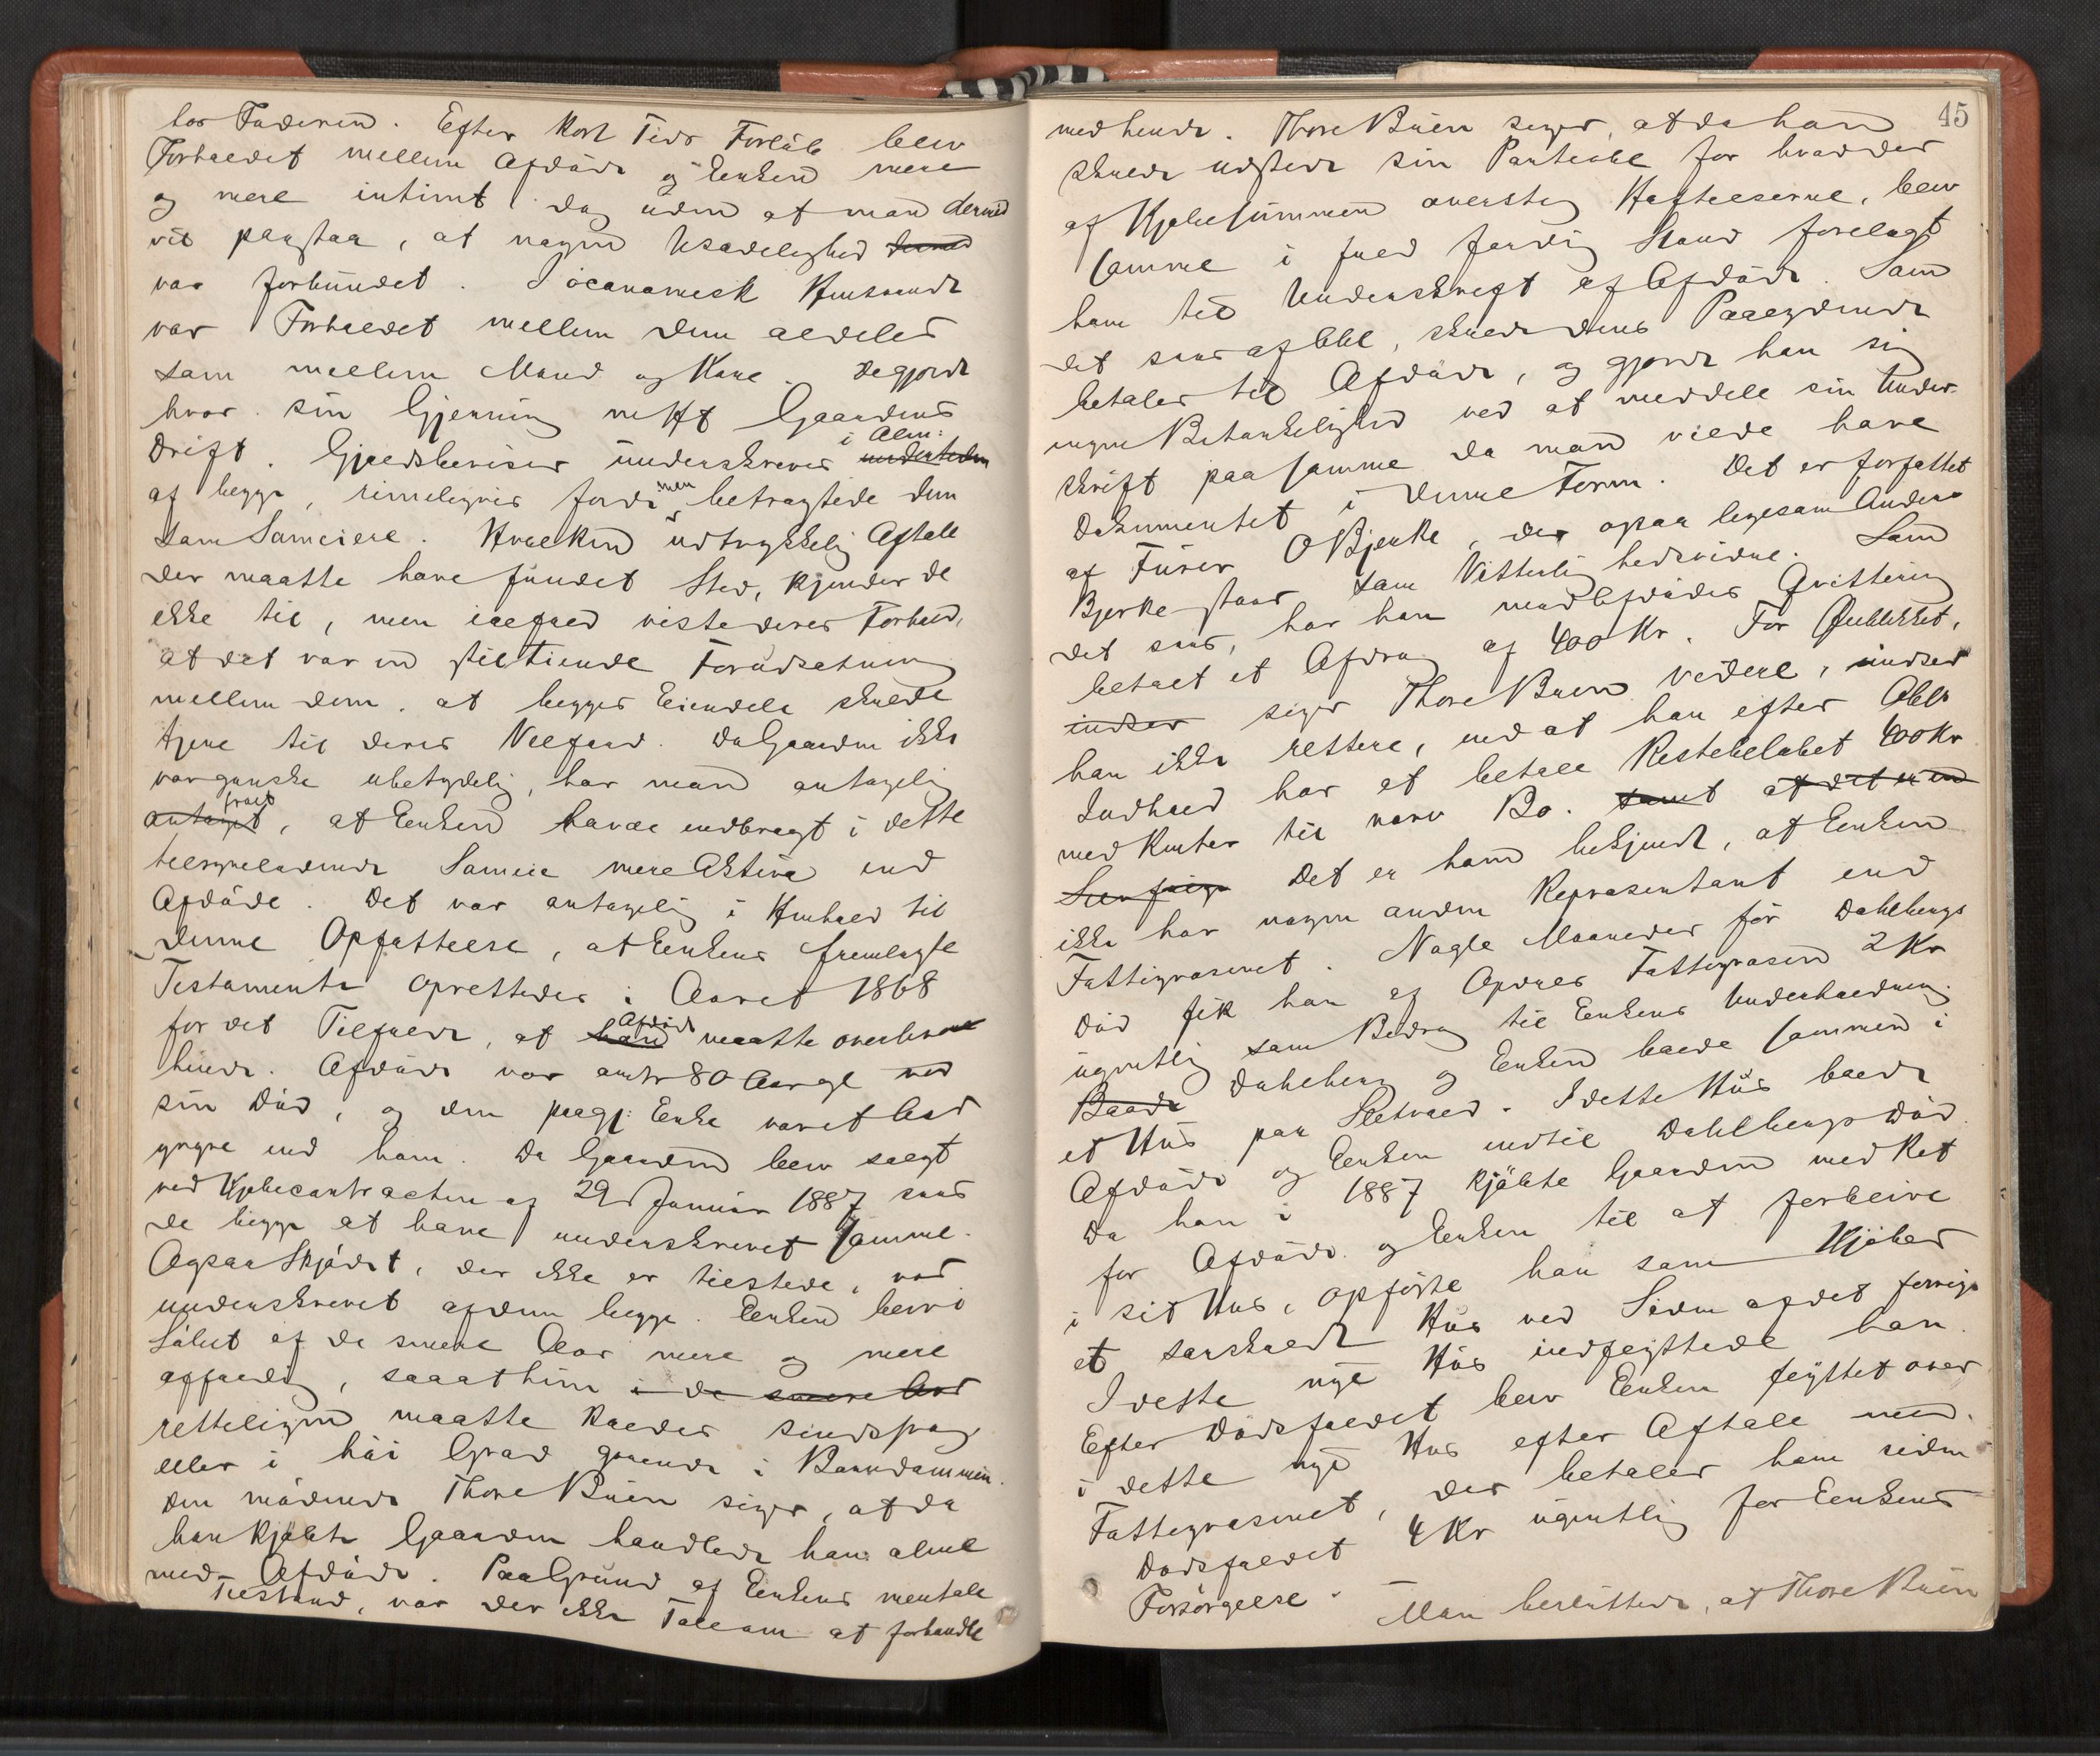 hos Faderen. Efter kort Tids Forløb blev
Forholdet mellem Afdøde og Enken mere
og mere intimt dog uden at man dermed
vil paastaa, at nogen Usædelighed dermed
var forbundet. I økonomisk Henseende
var Forholdet mellem dem aldeles
som mellem Mand og Kone. De gjorde
hver sin Gjerning ved Gaardens
i Alm:
Drift. Gjældsbeviser underskreves undertiden
af begge, rimeligvis fordi men betragtede dem
som Sameiere. Hvilken udtrykkelig Aftale
der maatte have fundet Sted, kjender de
ikke til, men ialfald viste deres Forhold,
at det var en stiltiende Forudsætning
mellem dem, at begges Eiendele skulde
tjene til deres Velfærd. Da Gaarden ikke
var ganske ubetydelig, har man antagelig
troet
antaget, at Enken havde indbragt i dette
tilsyneladende Sameie mere Aktiva end
Afdøde. Det var antagelig i Henhold til
denne Opfattelse, at Enkens fremlagte
Testamente oprettedes i Aaret 1868
Afdøde
for det Tilfælde, at han maatte overleve
hende. Afdøde var omtr 80 Aar gl ved
sin Død, og den paagj. Enke var et Aar
yngre end ham. Da Gaarden blev solgt
ved Kjøbecontracten af 29 Januar 1887 saaes
de begge at have underskrevet samme.
Ogsaa Skjødet, der ikke er tilstede, var
underskrevet af dem begge. Enken blev i
Løbet af de senere Aar mere og mere
affældig, saa at hun i de senere Aar
retteligen maatte kaldes sindssvag
eller i høi Grad gaaende i Barndommen.
Den mødende Thore Buen siger, at da
han kjøbte Gaarden handlede han alene
med Afdøde. Paa Grund af Enkens mentale
Tilstand, var der ikke Tale om at forhandle
45
med hende. Thore Buen siger, at da han
skulde udstede sin Pantobl for hvad der
af Kjøbesummen oversteg Heftelserne, blev
samme i fuld færdig Stand forelagt
ham til Underskrift af Afdøde. Som
det sees af Obl, skulde dens Paalydende
betales til Afdøde, og gjorde han sig
ingen Betænkelighed ved at meddele sin Under-
skrift paa samme da man vilde have
Dokumentet i denne Form. Det er forfattet
af Furer O Bjerke, der ogsaa ligesom Anders
Bjerke staar som Vitterlighedsvidne. Som
det sees, har han mod Afdødes Qvittering
betalt et Afdrag af 400 Kr. For Øieblikket,
indser siger Thore Buen videre, indser
han ikke rettere, end at han efter Obls
Indhold har at betale Restebeløbet 400 Kr
med Renter til nærv Bo. samt at det er en
Det er ham bekjendt, at Enken
ikke har nogen anden Repræsentant end
Fattigvæsenet. Nogle Maaneder før Dahlbergs
Død fik han af Opdals Fattigvæsen 2 Kr
ugentlig som Bidrag til Enkens Underholdning.
Baade Dahlberg og Enken boede sammen i
et Hus paa Sletvold. I dette Hus boede
Afdøde og Enken indtil Dahlbergs Død
Da han i 1887 kjøbte Gaarden med Ret
for Afdøde og Enken til at forblive
i sit Hus, opførte han som Kjøber
et særskildt Hus ved Siden af det forrige
I dette nye Hus indflyttede han.
Efter Dødsfaldet blev Enken flyttet over
i dette nye Hus efter Aftale med
Fattigvæsenet, der betaler ham siden
Dødsfaldet 4 Kr ugentlig for Enkens
Forsørgelse.
Man besluttede, at Thore Buen